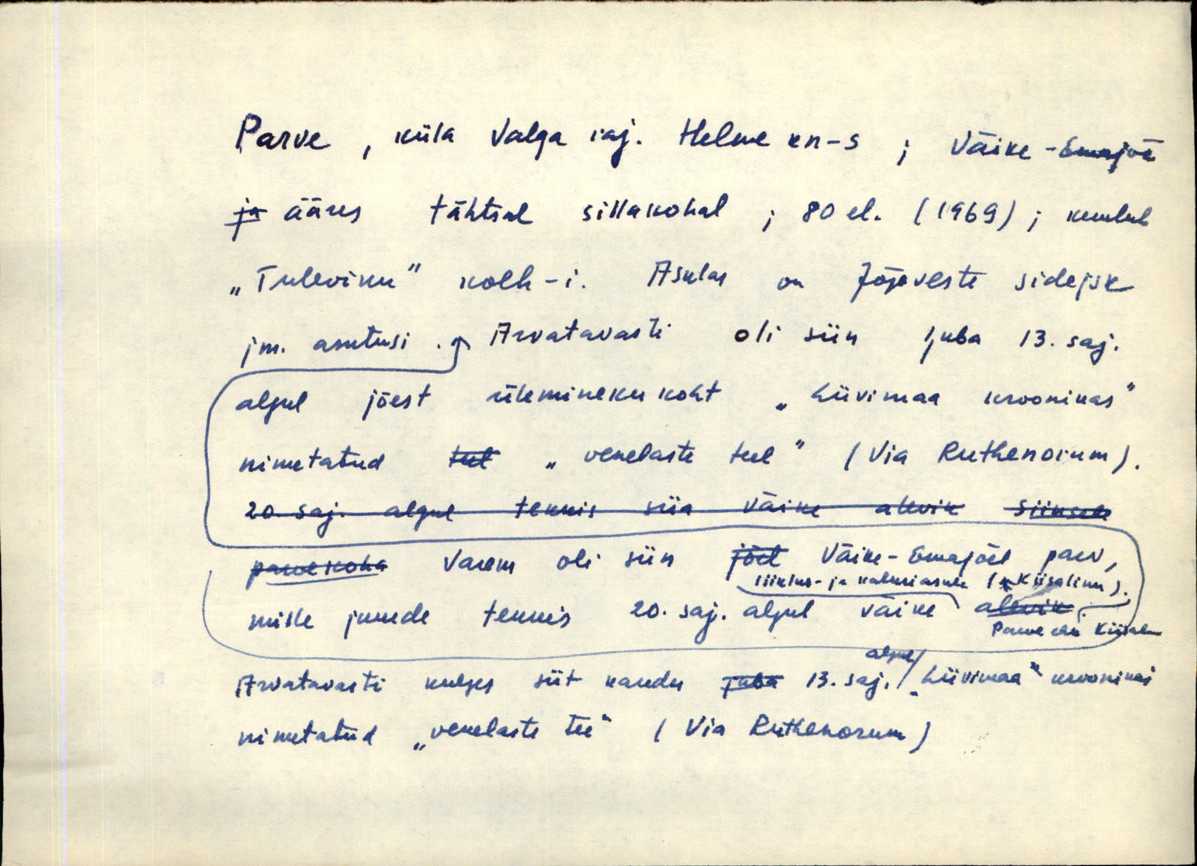 Parve, küla Valga raj. Helme kn-s; Väike-Emajõe
ja ääres tähtsal sillakohal; 80 el. (1969); kuulub
„Tuleviku" kolh-i. Asulas on Jõgeveste sidejsk
jm. asutusi. Arvatavasti oli siin juba 13. saj.
algul jõest üleminekukoht „Liivimaa kroonikas"
nimetatud teel „venelaste teel" (Via Ruthenorum).
20 saj. algul tekkis siia väike alevik siinsele
parvekoha Varem oli siin jõel Väike-Emajõel parv,
liiklus- ja kaluriasula (Kiisalinn).
mille juurde tekkis 20. saj. algul väike alevik
Parve ehk
algul
Arvatavasti kulges siit kaudu juba 13. saj. „Liivimaa" kroonikas
nimetatud „venelaste tee" (Via Ruthenorum)